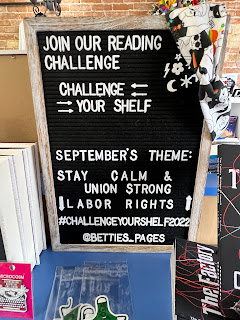 JOIN OUR READING
CHALLENGE
CHALLENGE
YOUR SHELF
SEPTEMBER'S THEME:
STAY CALM &
UNION STRONG
LABOR RIGHTS
#CHALLENGEYOURSHELF2022
@BETTIES_PAGES
MICROCOSM
The Factory